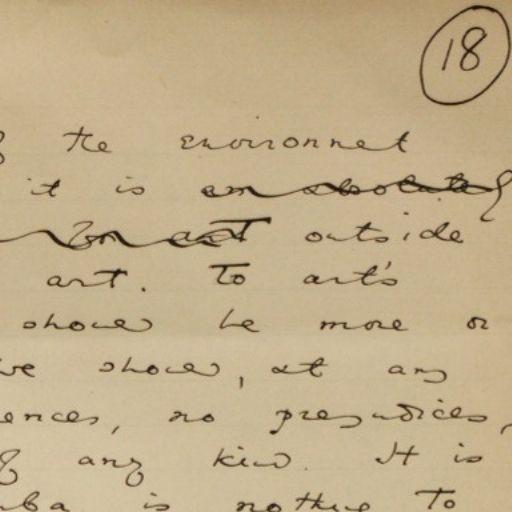 18
the environnet
it is an absolutely
Zon art outside
art. To art's
should be more or
we should, at any
ences, no prejudices,
of any kind. It is
is nothing to